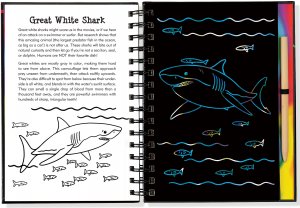 Great White Shark
Great white sharks might scare us in the movies, or if we hear
of an attack on a swimmer or surfer. But research shows that
this amazing animal (the largest predatory fish in the ocean,
as big as a car!) is not after us. These sharks will bite out of
natural curiosity and then let go if you're not a sea lion, seal,
or dolphin. Humans are NOT their favorite dish!
Great whites are mostly gray in color, making them hard
to see from above. This camouflage lets them approach
prey unseen from underneath, then attack swiftly upwards.
They're also difficult to spot from below because their under-
side is all white, and blends in with the water's sunlit surface.
They can smell a single drop of blood from more than a
thousand feet away, and they are powerful swimmers with
hundreds of sharp, triangular teeth!